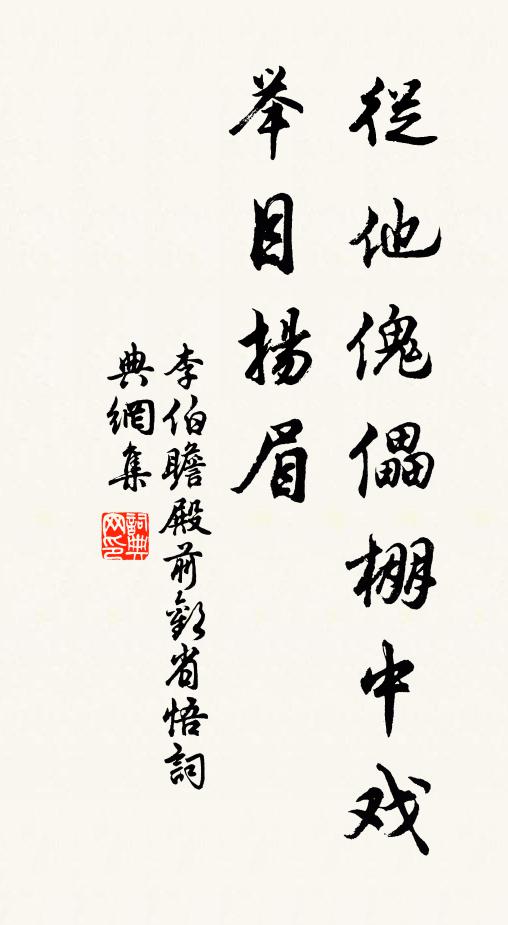 從他傀儡棚中戏
举目揚眉
李伯瞻殿前歡省悟詞
典網集
詞典網印